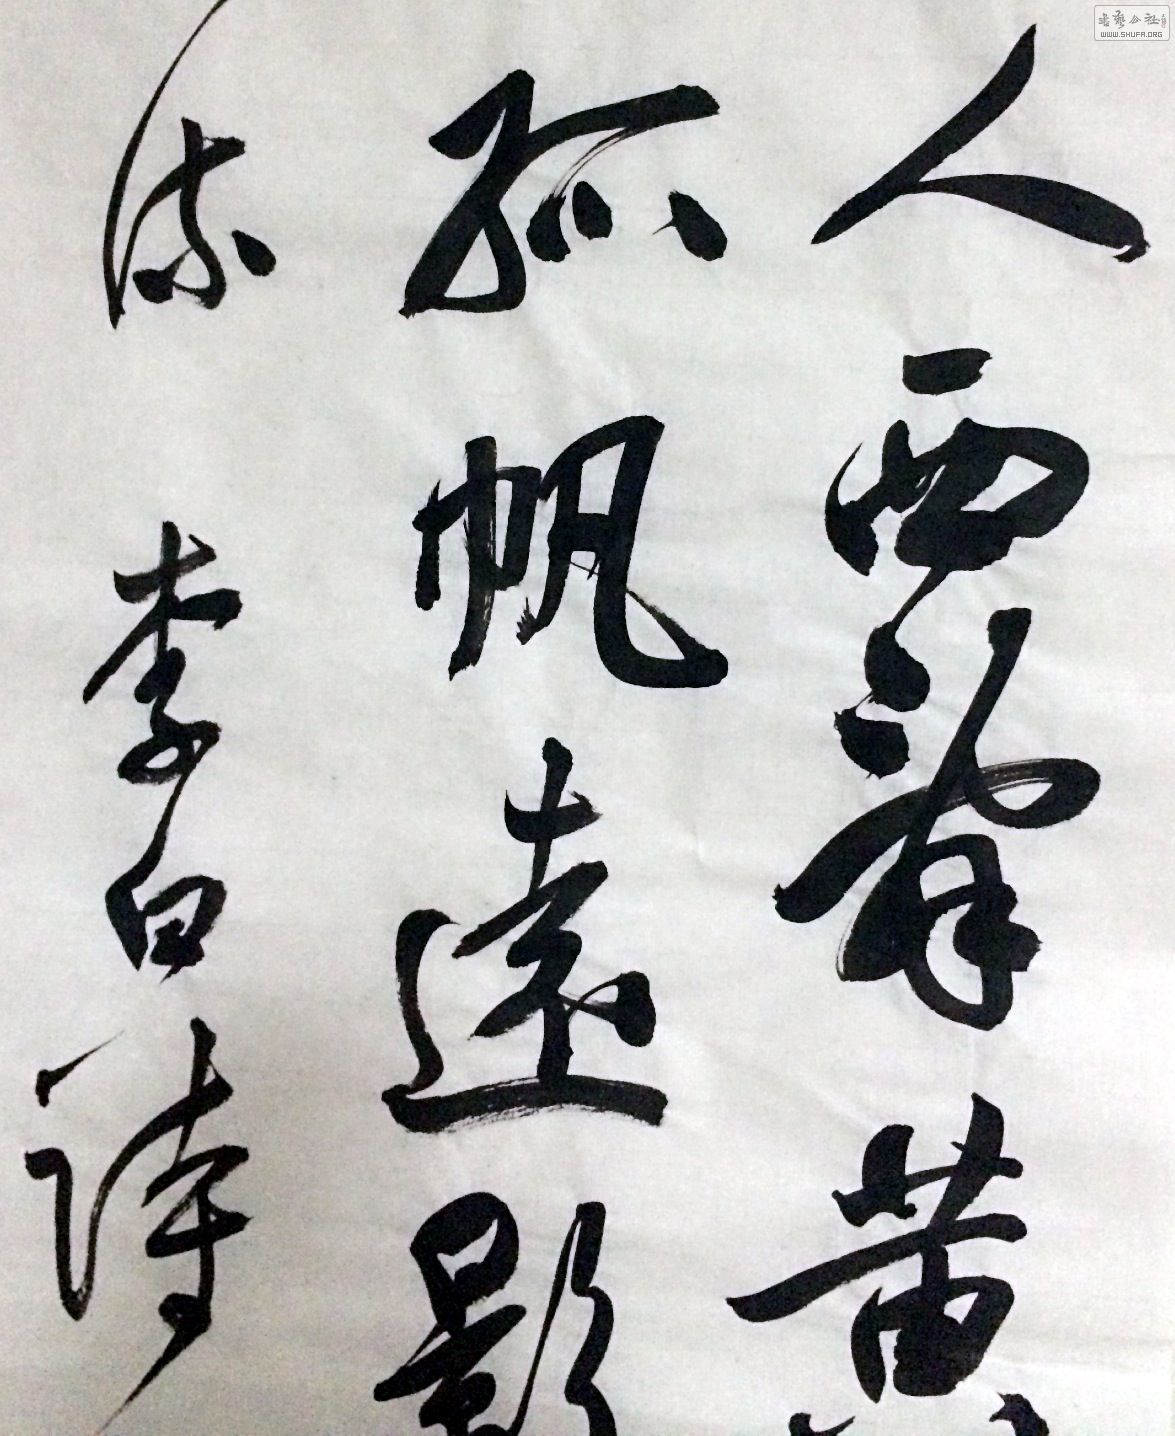 人西辭黄
孤帆遠影
流 李白詩
書藝公社
WWW.SHUFA.ORG